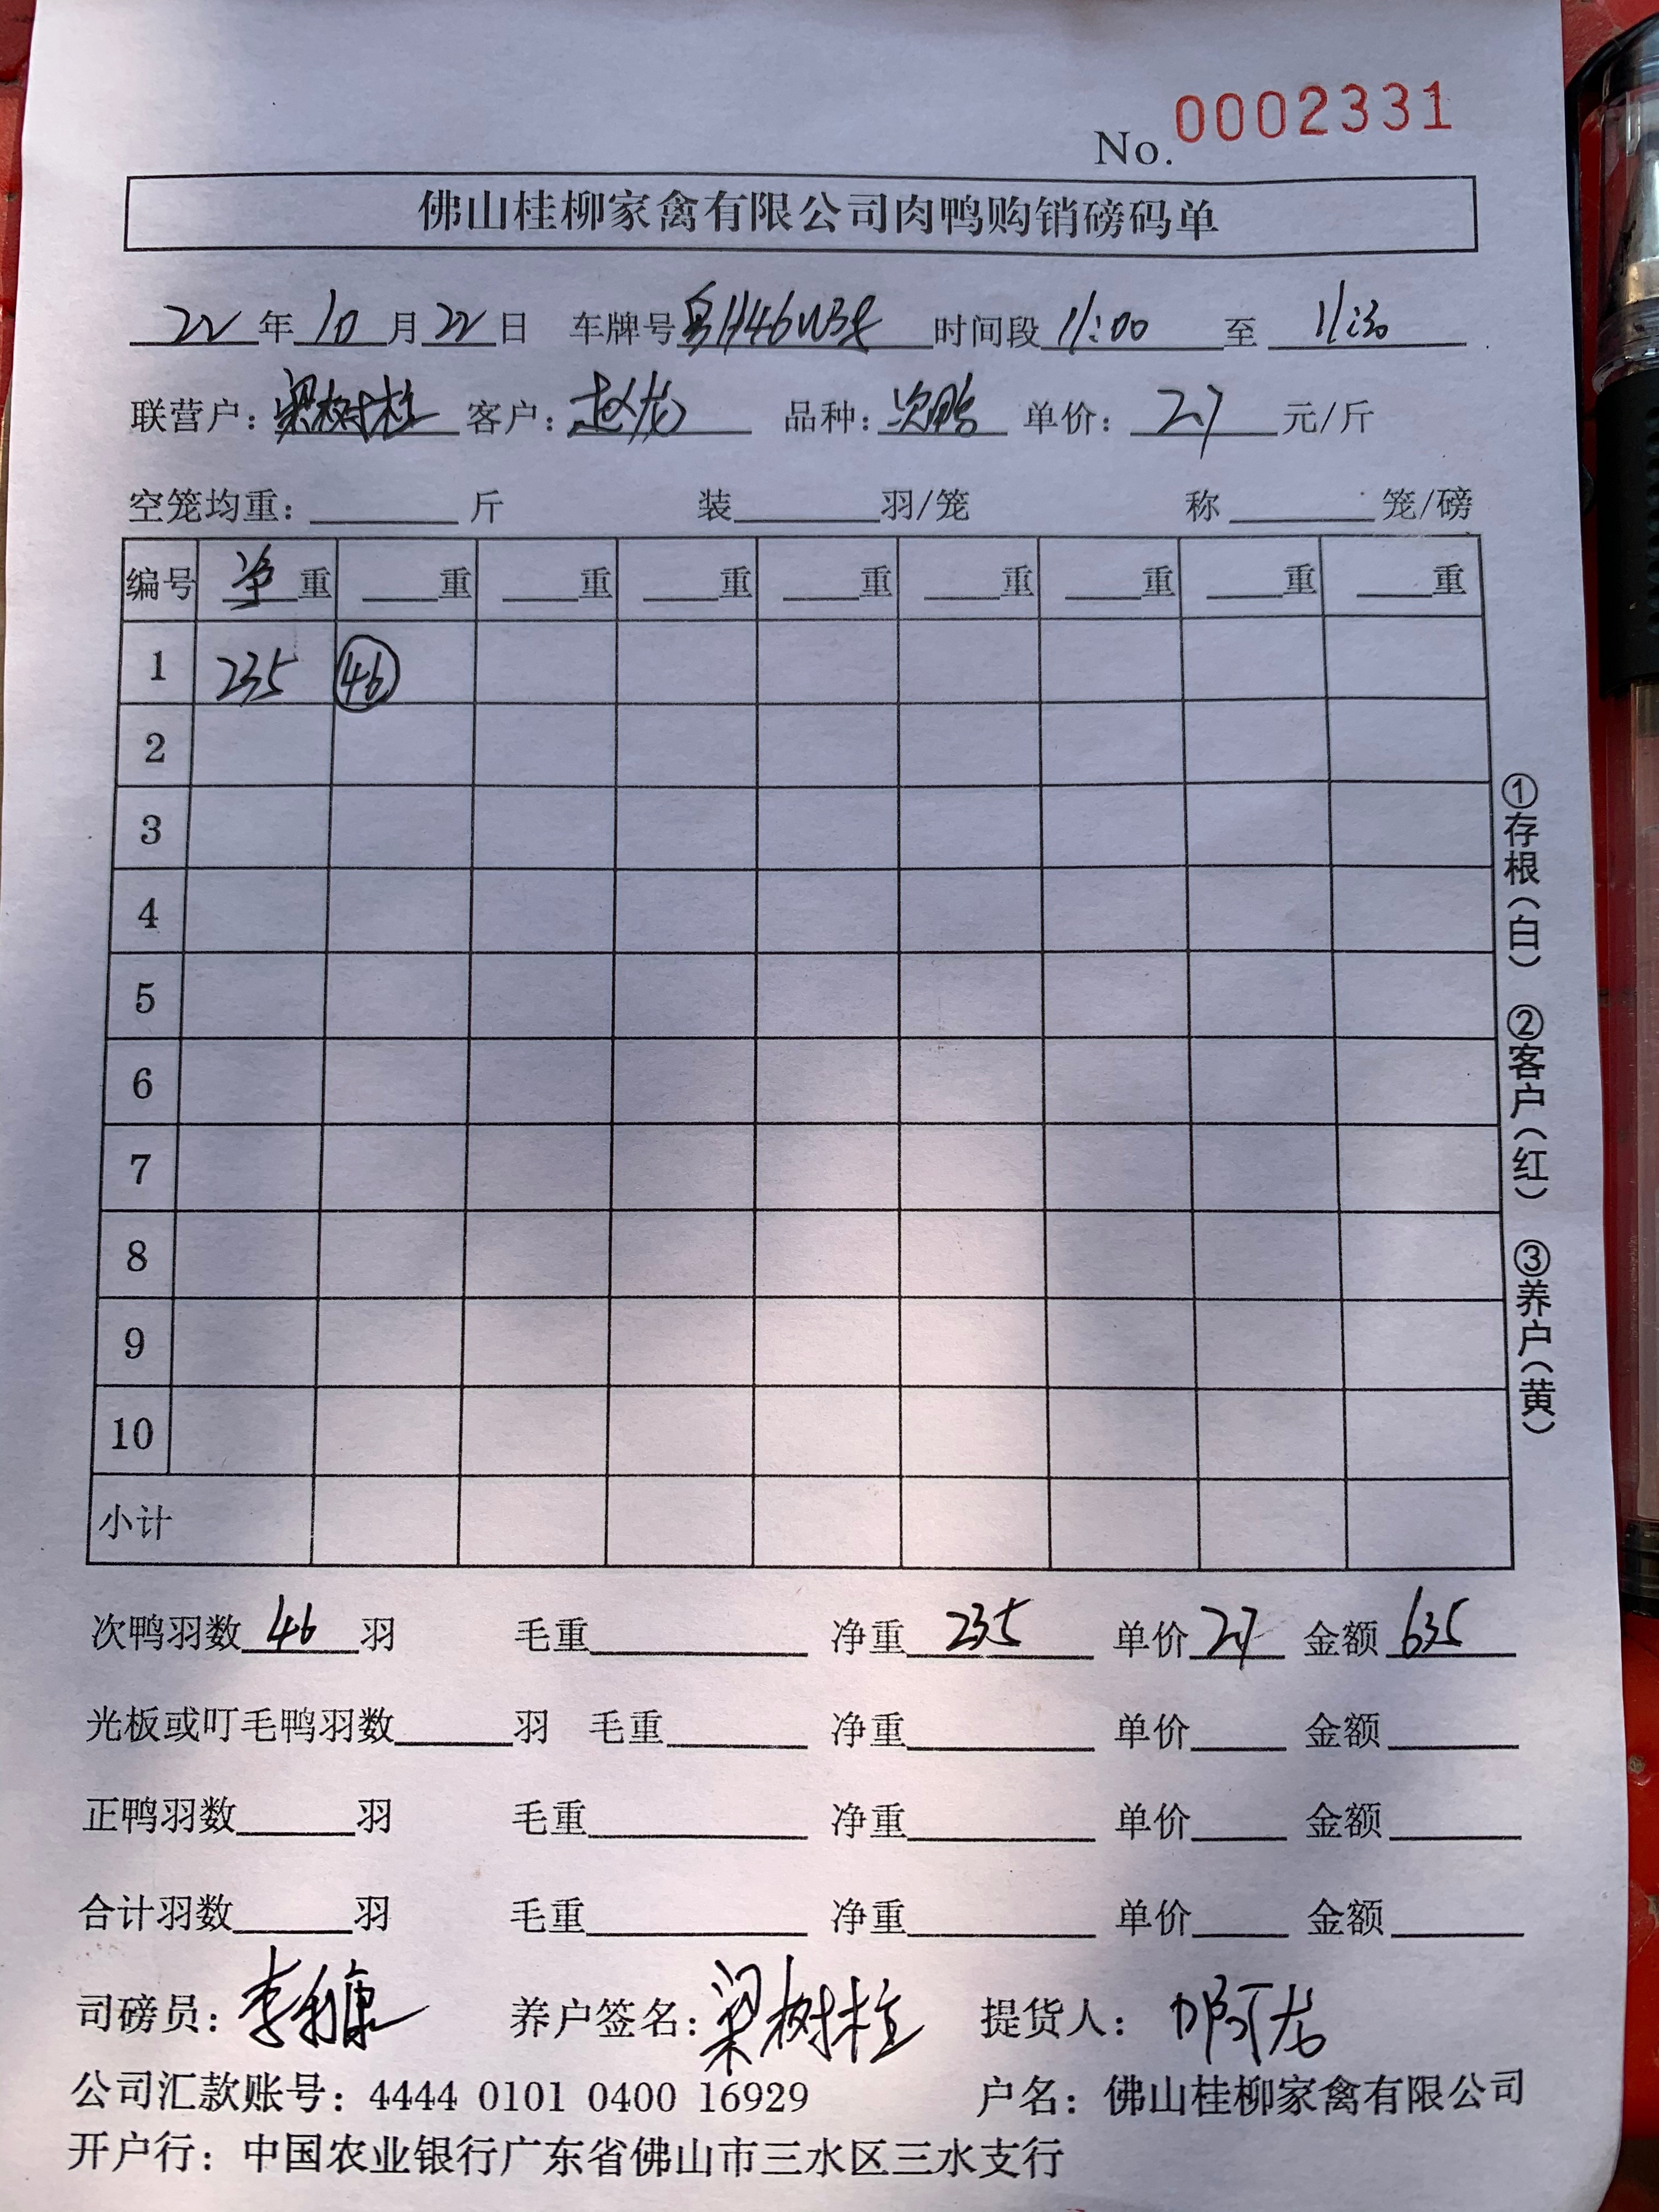 No. 0002331
佛山桂柳家禽有限公司肉鸭购销磅码单
22年10月22日 车牌号粤H46W38 时间段11:00至11:30
联营户:梁树柱 客户:赵龙 品种:次鸭 单价:2.7元/斤
空笼均重: 斤 装 羽/笼 称 笼/磅
编号 净重 重 重 重 重 重 重 重 重
1 235 46
2
3
4
5
6
7
8
9
10
小计
①存根(白) ②客户(红) ③养户(黄)
次鸭羽数46羽 毛重 净重235 单价2.7 金额635
光板或叮毛鸭羽数 羽 毛重 净重 单价 金额
正鸭羽数 羽 毛重 净重 单价 金额
合计羽数 羽 毛重 净重 单价 金额
司磅员: 养户签名:梁树柱 提货人:啊龙
公司汇款账号:4444 0101 0400 16929 户名:佛山桂柳家禽有限公司
开户行:中国农业银行广东省佛山市三水区三水支行